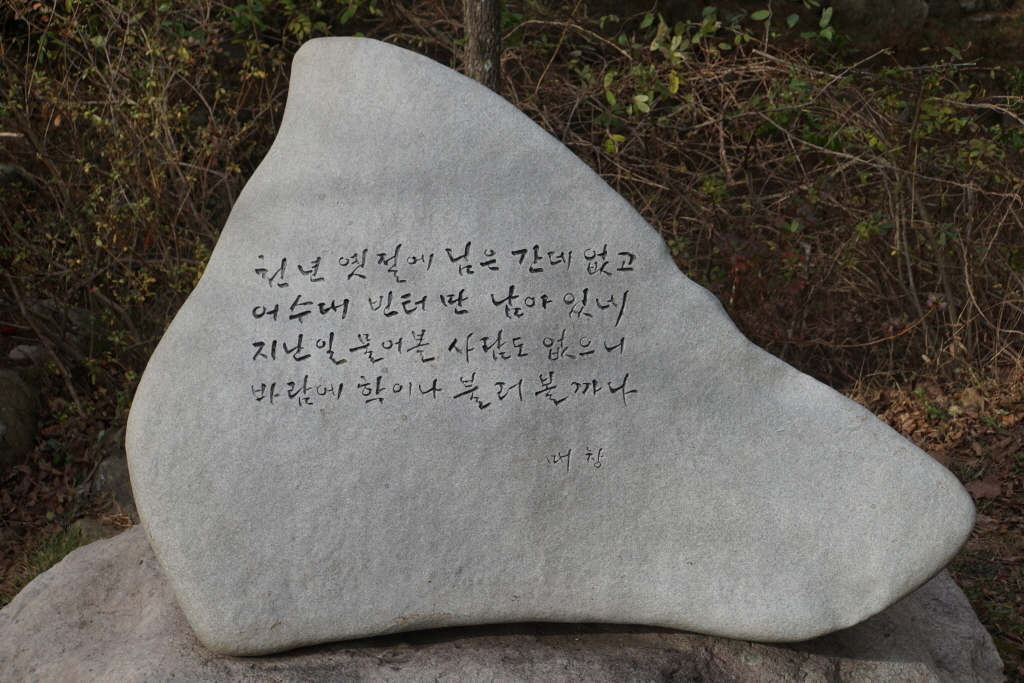 천년 옛절에 님은 간데 없고
어수대 빈터 만 남아 있네
지난일 물어볼 사람도 없으니
바람에 학이나 불러 볼까나
매창